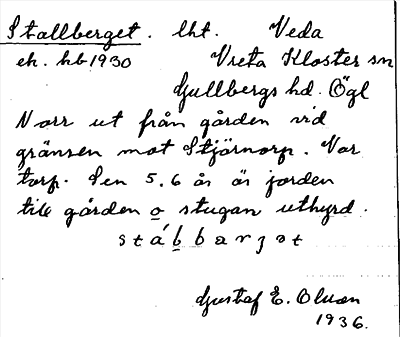 Stallberget. lht. Veda
ek. hb 1930 Vreta Kloster sn
Gullbergs hd. Ögl
Norr ut från gården vid
gränsen mot Stjärnorp. Var
torp. Sen 5.6 år är jorden
till gården o stugan uthyrd.
Gustaf E. Olsson
1936.